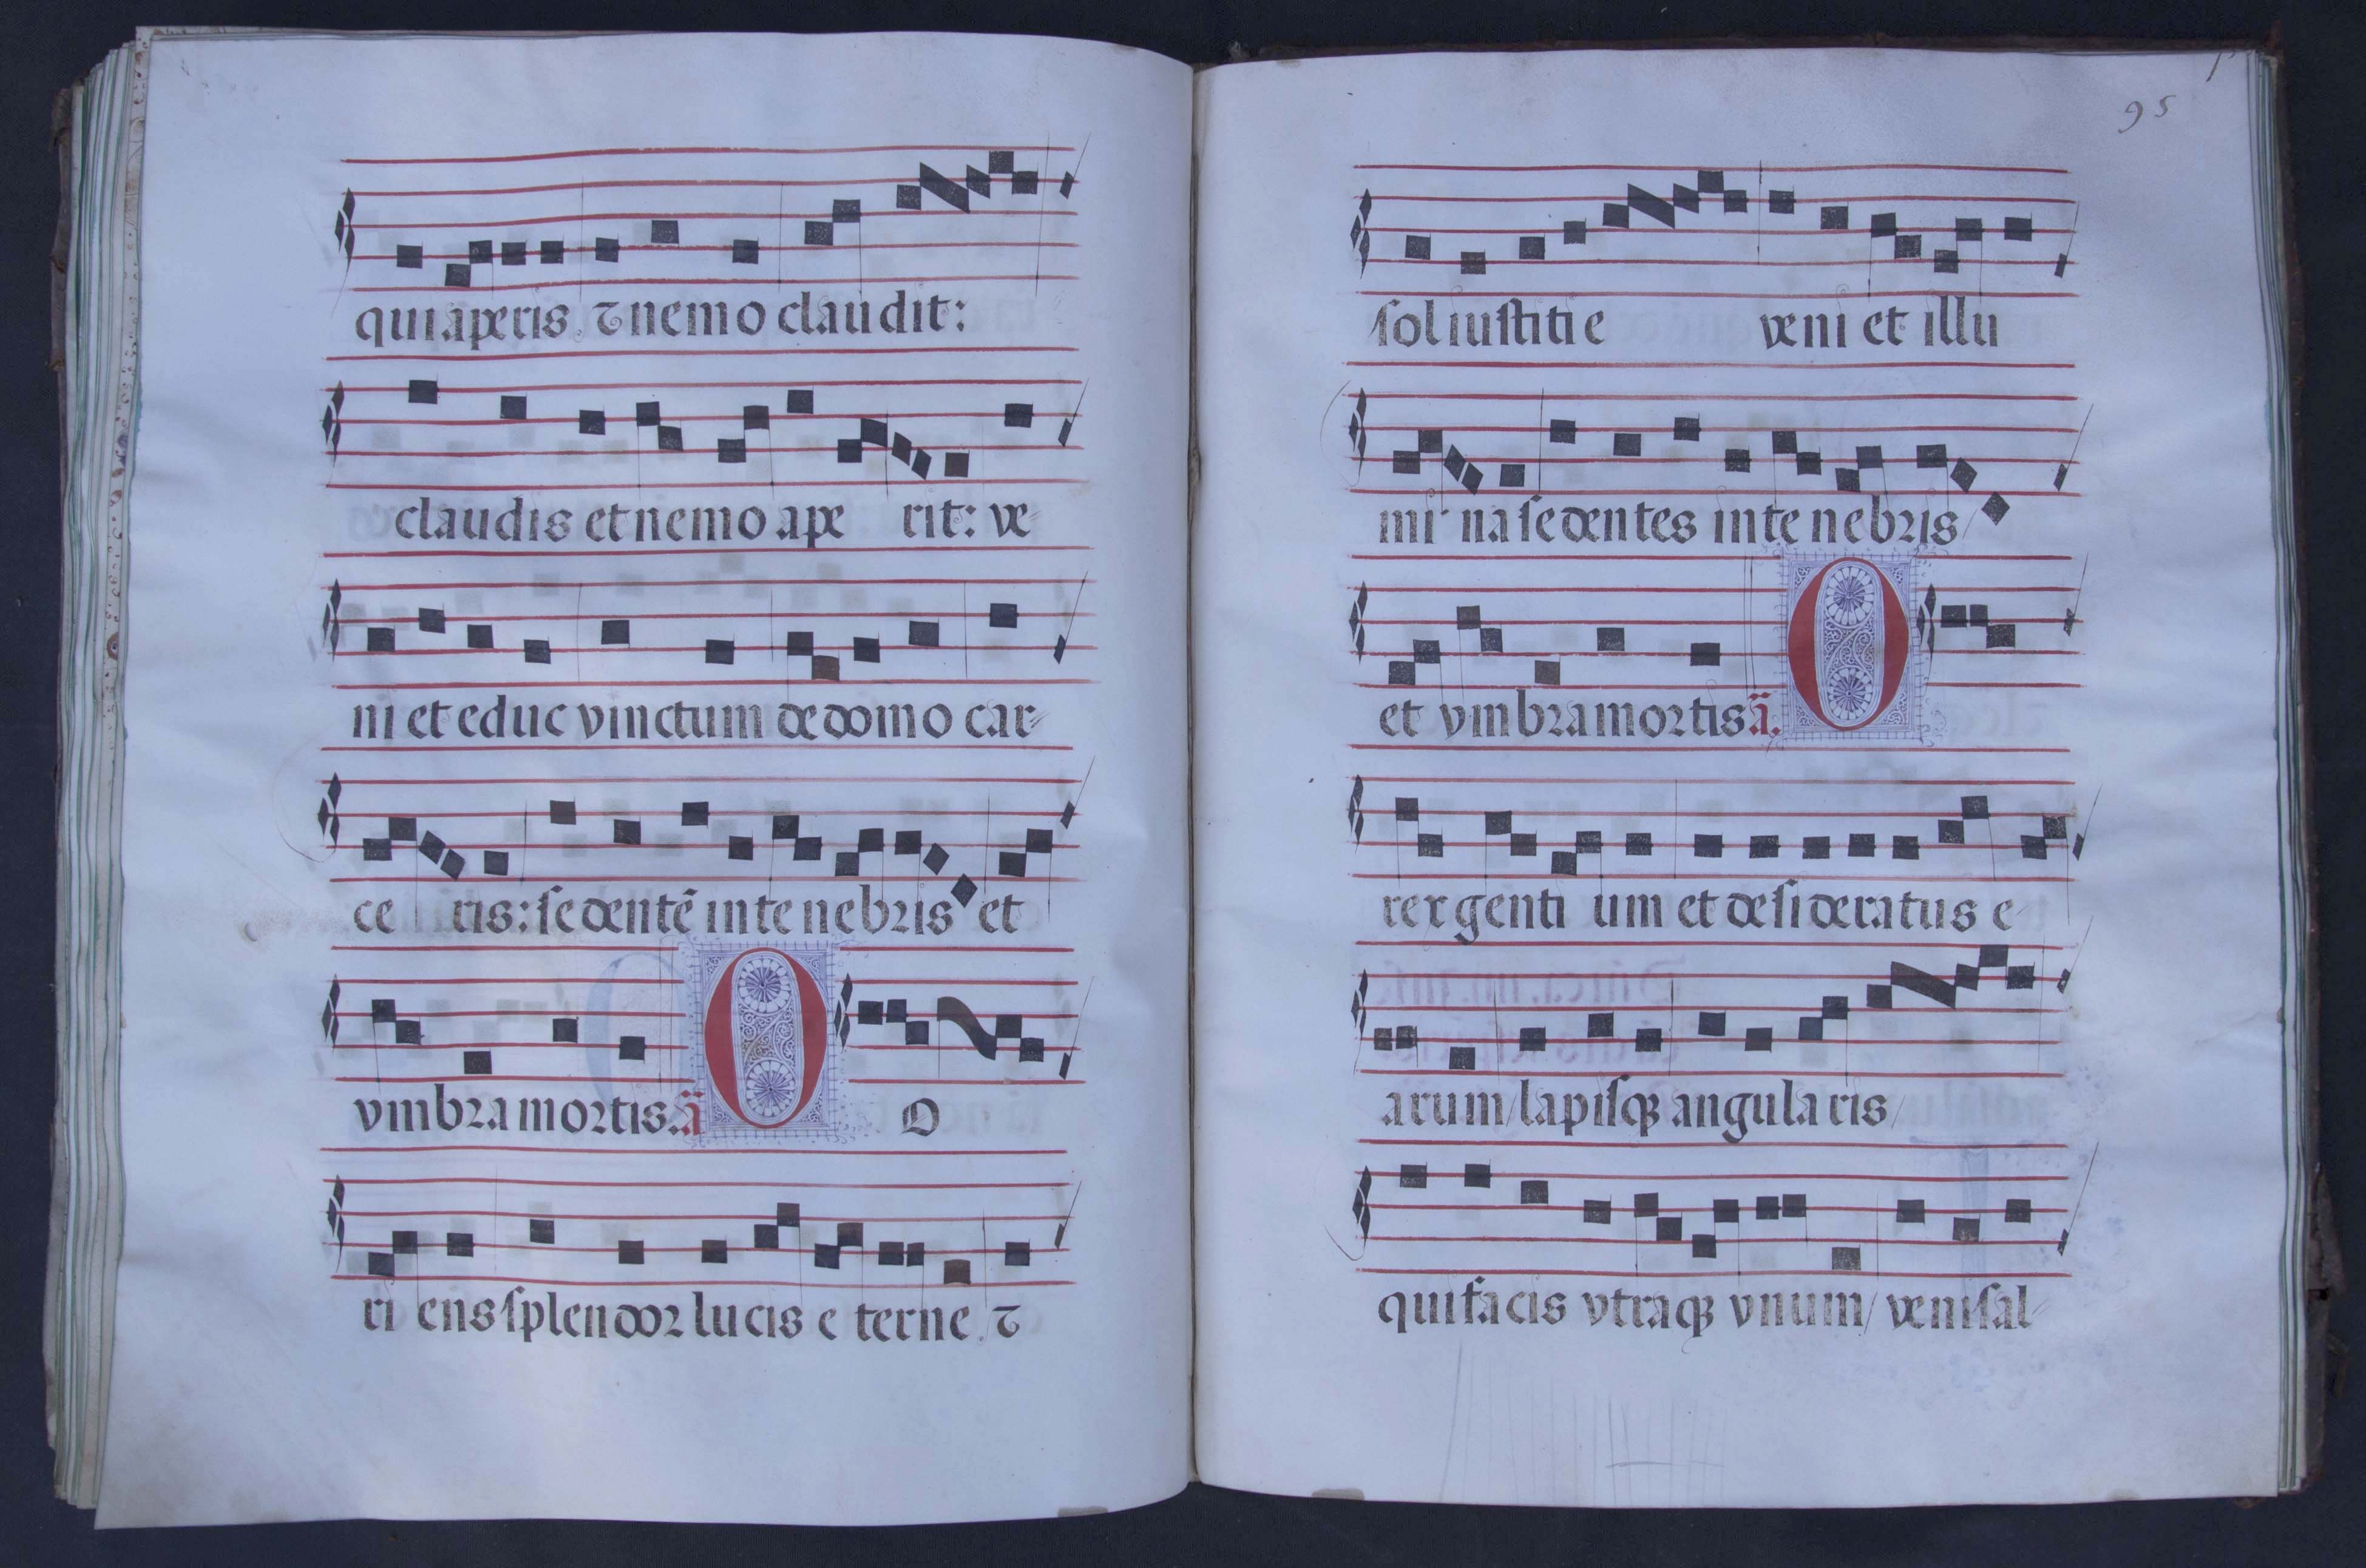 qui aperis. ⁊ nemo claudit:
claudis et nemo ape rit: ve-
ni et educ vinctum de domo car-
ce ris: sedentē in tenebris et
vmbra mortis. a̅ O O
ri ens splendor lucis e terne. ⁊
95
sol iustiti e veni et illu
mi na sedentes in tenebris/
et vmbra mortis a̅. O
rex genti um et desideratus e-
arum/ lapisqꝫ angula ris/
qui facis vtraqꝫ vnum/ veni sal-